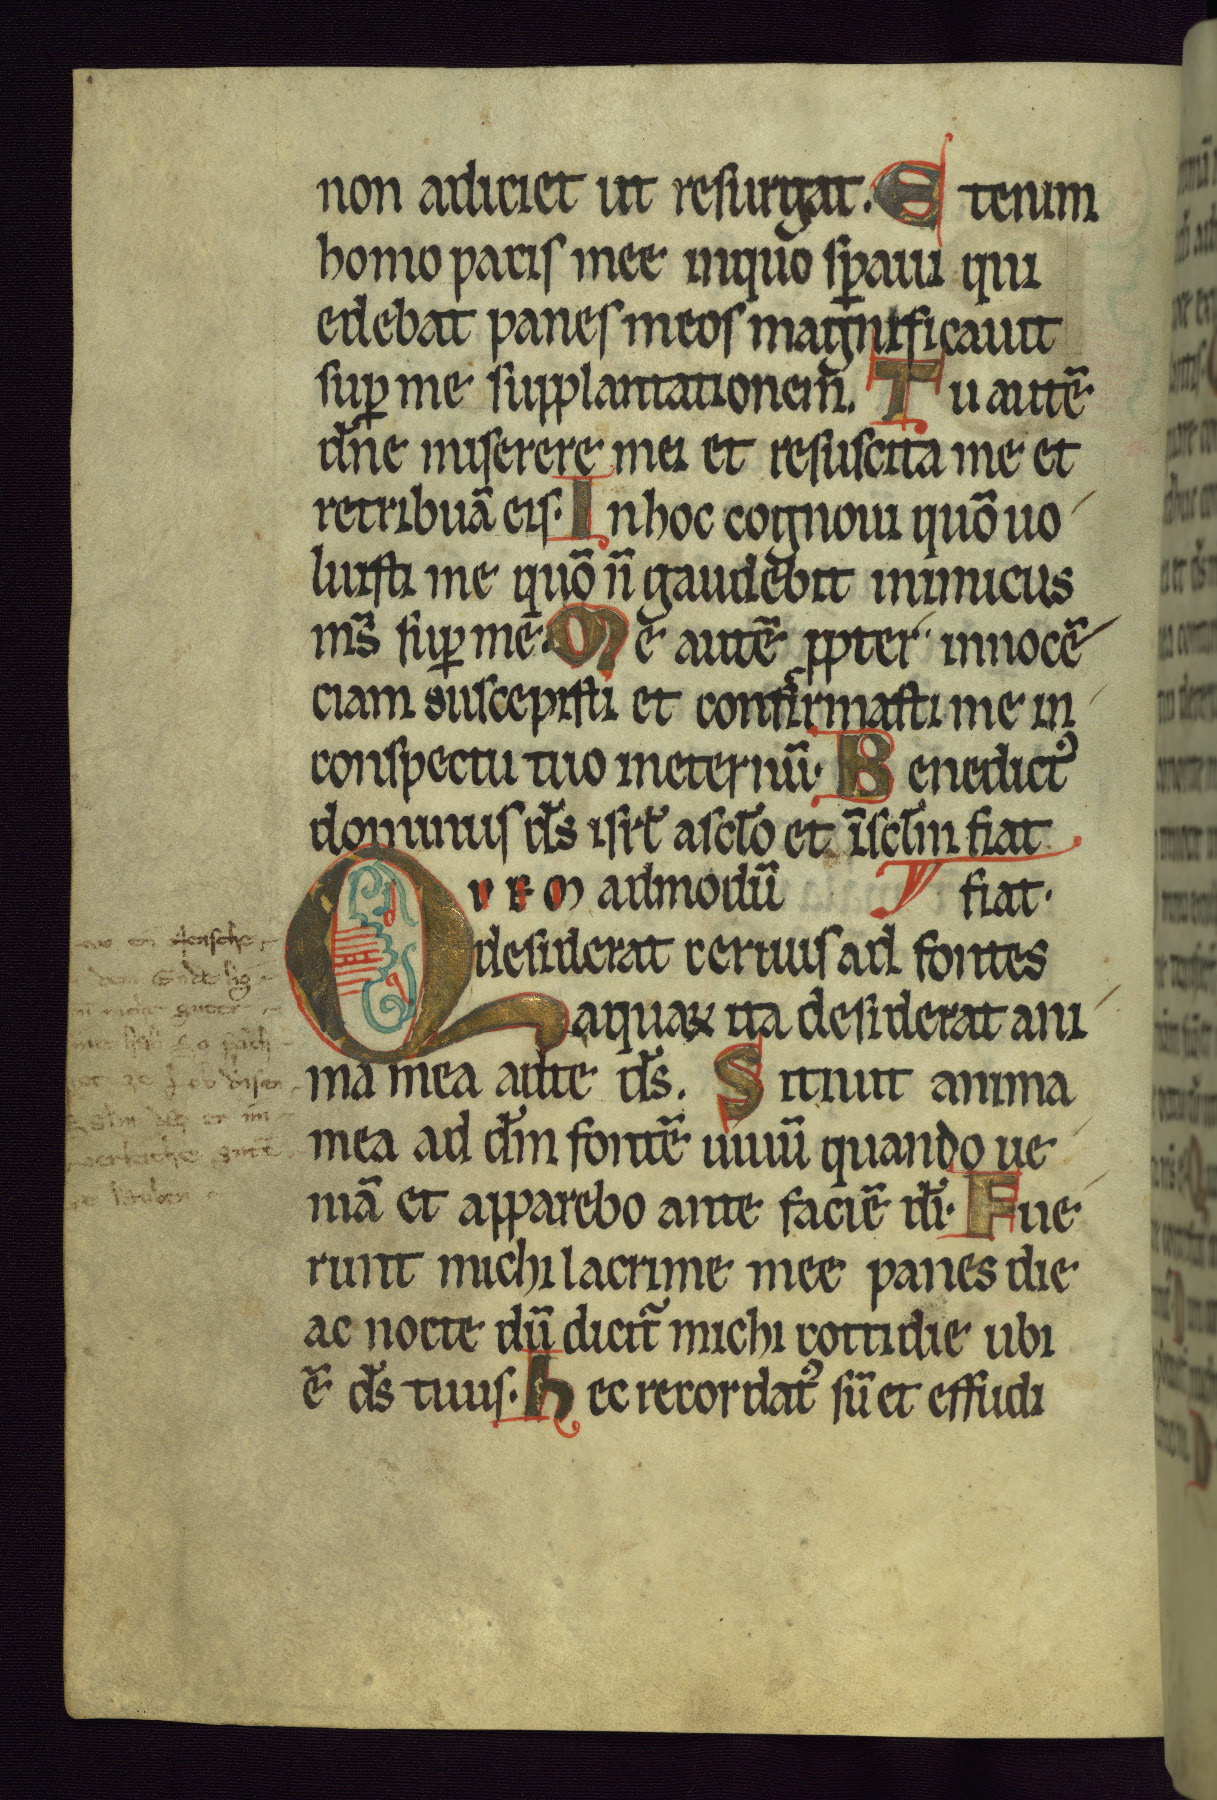 non adiciet ut resurgat. Etenim
homo pacis mee inquo sp̄aui qui
edebat panes meos magnificauit
sup̄ me supplantationem̄. Tu autē
dn̄e miserere mei et resuscita me et
retribuā eis. Inhoc cognoui quō uo
luisti me quō n̄ gaudebit inimicus
ms̄ sup̄ me. Me autē ꝓpter innocē
ciam suscepisti et confirmasti me in
conspectu tuo ineternū. Benedictꝰ
dominus ds̄ isrl̄ ascl̄o et īscl̄m fiat
QVEM admodū fiat.
desiderat ceruus ad fontes
aquaꝝ ita desiderat ani
ma mea adte ds̄. Sitiuit anima
mea ad dm̄ fontē uiuū quando ue
niā et apparebo ante faciē dī. Fue
runt michi lacrime mee panes die
ac nocte dū dicit᷑ michi cottidie ubi
ē ds̄ tuus. Hec recordatꝰ sū et effudi